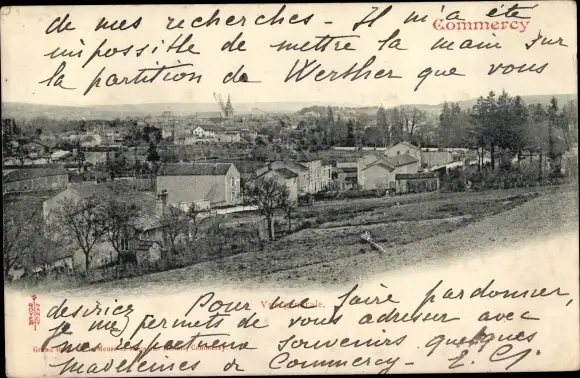 de mes recherches - Il m'a été
Commercy
impossible de mettre la main sur
la partition de Werther que vous
Vue générale.
désiriez Pour me faire pardonner,
je me permets de vous adresser avec
mes respectueux souvenirs quelques
Madeleines de Commercy -